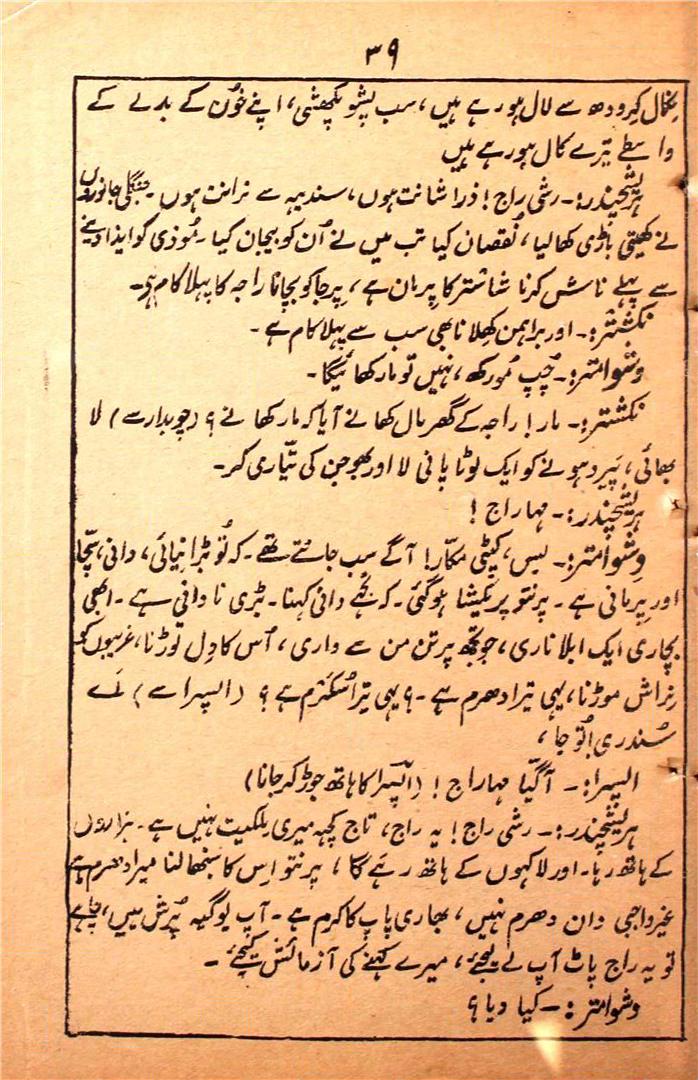 ۳۹
کرودھ سے لال ہو رہے ہیں، سب پشو پکھشی، اپنے خون کے بدلے کے
واسطے تیرے کال ہو رہے ہیں
ہریشچندر:۔ رشی راج! ذرا شانت ہوں، سندیہہ سے نرانت ہوں۔ جنگلی جانوروں
نے کھیتی باڑی کھا لیا، نُقصان کیا تب میں نے اُن کو بیجان کیا۔ مُوذی کو ایذا دینے
سے پہلے ناش کرنا شاشتر کا پرمان ہے، پرجا کو بچانا راجہ کا پہلا کام ہے۔
نکشتر:۔ اور براہمن کھلانا بھی سب سے پہلا کام ہے۔
وشوامتر:۔ چُپ مُورکھ، نہیں تو مار کھائیگا۔
نکشتر:۔ مار! راجہ کے گھر مال کھانے آیا کہ مار کھانے؟ (چوبدار سے) لا
بھائی، پَیر دہونے کو ایک لوٹا پانی لا اور بھوجن کی تیّاری کر۔
ہریشچندر:۔ مہاراج!
وِشوامتر:۔ بس، کپٹی مکّار! آگے سب جانتے تھے۔ کہ تُو بڑا نیائی، دانی، سچّا
اور پرمانی ہے۔ پرنتو پریکشا ہو گئی۔ کہ تُجھے دانی کہنا۔ بڑی نادانی ہے۔ ابھی
بچاری ایک ابلا ناری، جو تجھ پر تن من سے واری، اُس کا دِل توڑنا، غریبوں کو
نِراش موڑنا، یہی تیرا دھرم ہے۔؟ یہی تیرا سُکرم ہے؟ (السپرا سے) لَے
سُندری! تُو جا،
السپرا:۔ آگیّا مہاراج! (السپرا کا ہاتھ جوڑ کر جانا)
ہریشچندر:۔ رشی راج! یہ راج، تاج کچہہ میری مِلکیت نہیں ہے۔ ہزاروں
کے ہاتھ رہا۔ اور لاکہوں کے ہاتھ رہے گا، پرنتو اِس کا سنبھالنا میرا دھرم ہے
غیرواجی دان دھرم نہیں، بھاری پاپ کا کرم ہے۔ آپ یوگیہ پُرش ہیں، چاہے
تو یہ راج پاٹ آپ لے لیجئے، میرے کہنے کی آزمائش کیجئے۔
وشوامتر:۔ کیا دیا؟